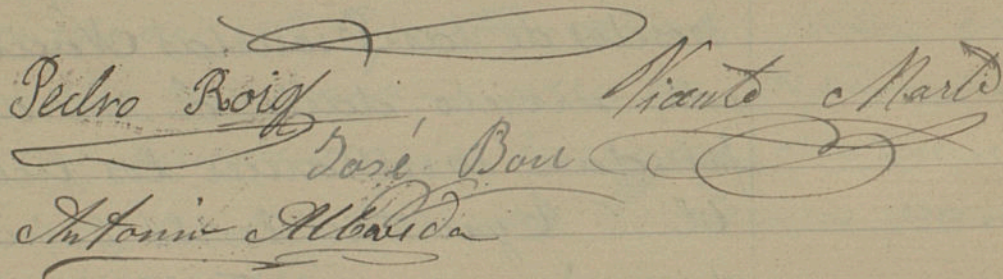 Pedro Roig
Vicente Martí
José Bou
Antonio Albaida